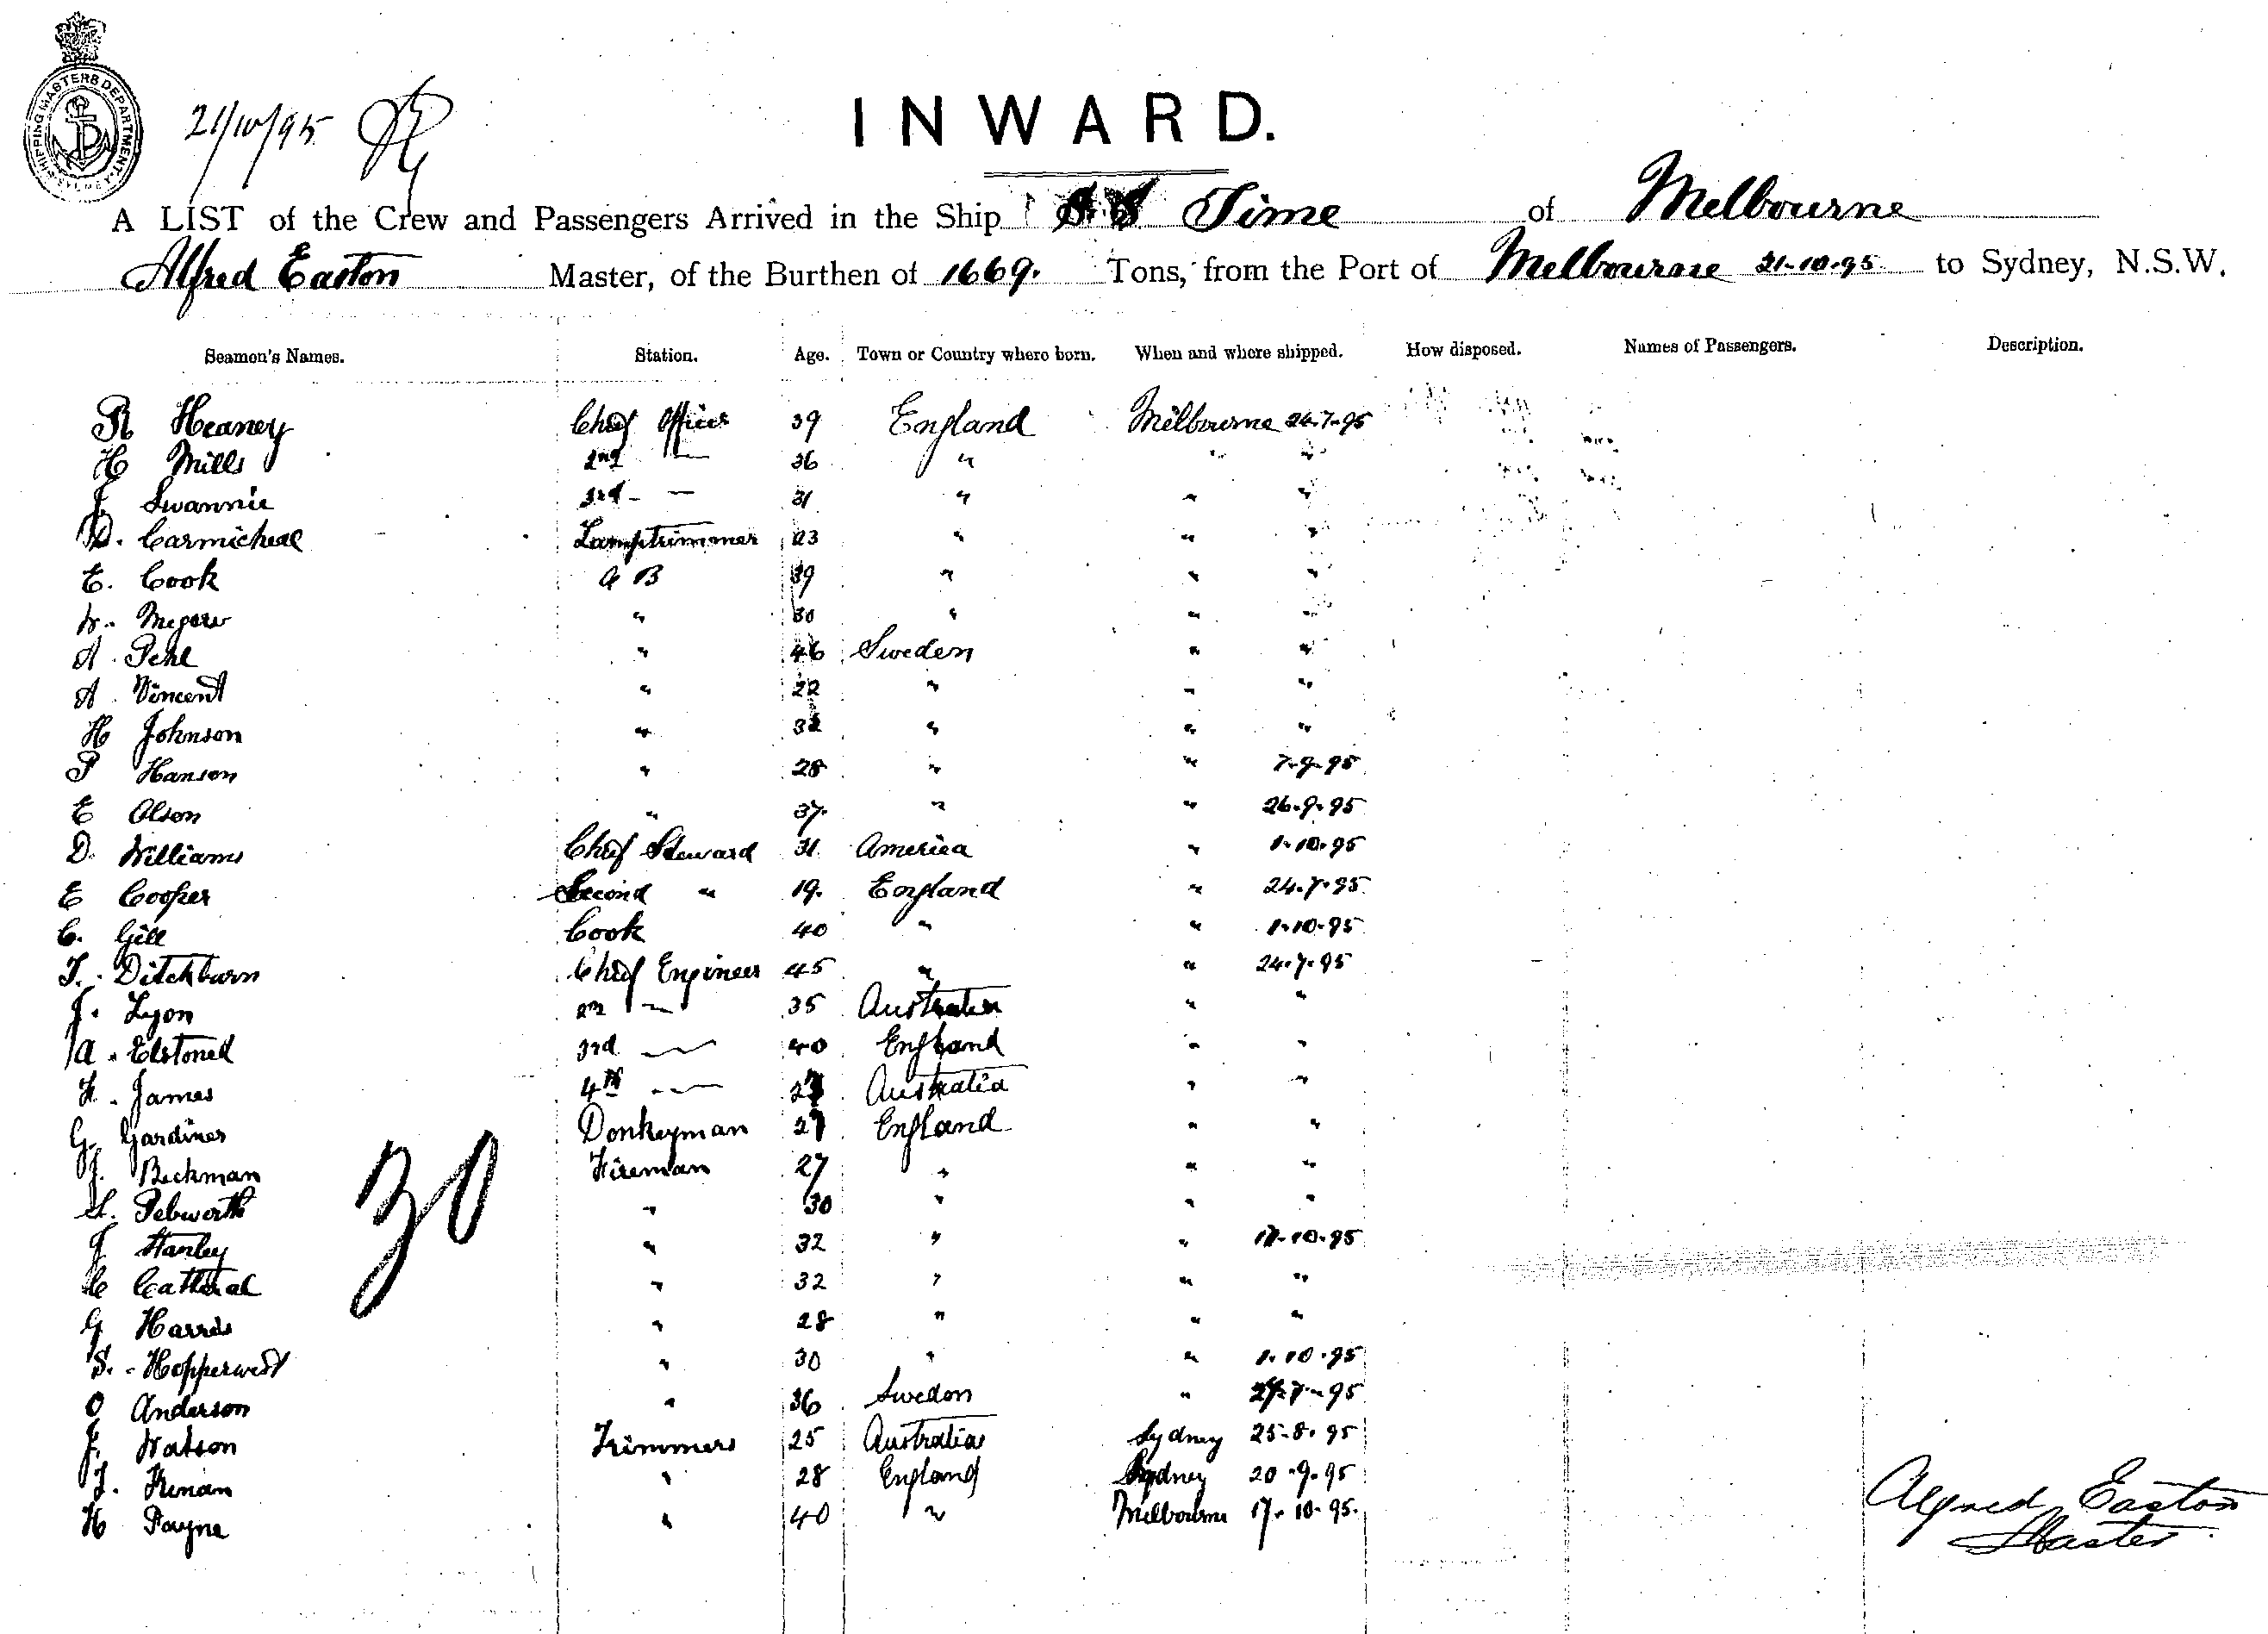 SHIPPING MASTERS DEPARTMENT SYDNEY
21/10/95
INWARD.
A LIST of the Crew and Passengers Arrived in the Ship S S Time of Melbourne
Alfred Easton Master, of the Burthen of 1669. Tons, from the Port of Melbourne 21-10-95 to Sydney, N.S.W.
Seamen's Names. Station. Age. Town or Country where born. When and where shipped. How disposed. Names of Passengers. Description.
R Heaney Chief Officer 39 England Melbourne 24-7-95
H Mills 2nd — 36 " " "
J. Swannie 3rd — 31 " " "
D. Carmicheal Lamptrimmer 23 " " "
E. Cook A B 39 " " "
W. " 30 " " "
A. Pehl " 46 Sweden " "
A. Vincent " 22 " " "
H Johnson " 32 " " "
P Hanson " 28 " " 7-9-95
E Olson " 37. " " 26-9-95
D. Williams Chief Steward 31 America " 1-10-95
E Cooper Second " 19. England " 24-7-95
C. Gill Cook 40 " " 1-10-95
T. Ditchburn Chief Engineer 45 " " 24-7-95
J. Lyon 2nd — 35 Australia " "
A. Elstoned 3rd — 40 England " "
F. James 4th — Australia " "
G. Gardiner Donkeyman 27 England " "
J. Beckman Fireman 27 " " "
S. Pebworth " 30 " " "
J Stanley " 32 " " 17-10-95
C Catheral " 32 " " "
G Harris " 28 " " "
S. Hopperwest " 30 " " 1-10-95
O Anderson " 36 Sweden " 24-7-95
J. Watson Trimmers 25 Australia Sydney 25-8-95
T. Kenan " 28 England Sydney 20-9-95
H Payne " 40 " Melbourne 17-10-95.
30
Alfred Easton
Master